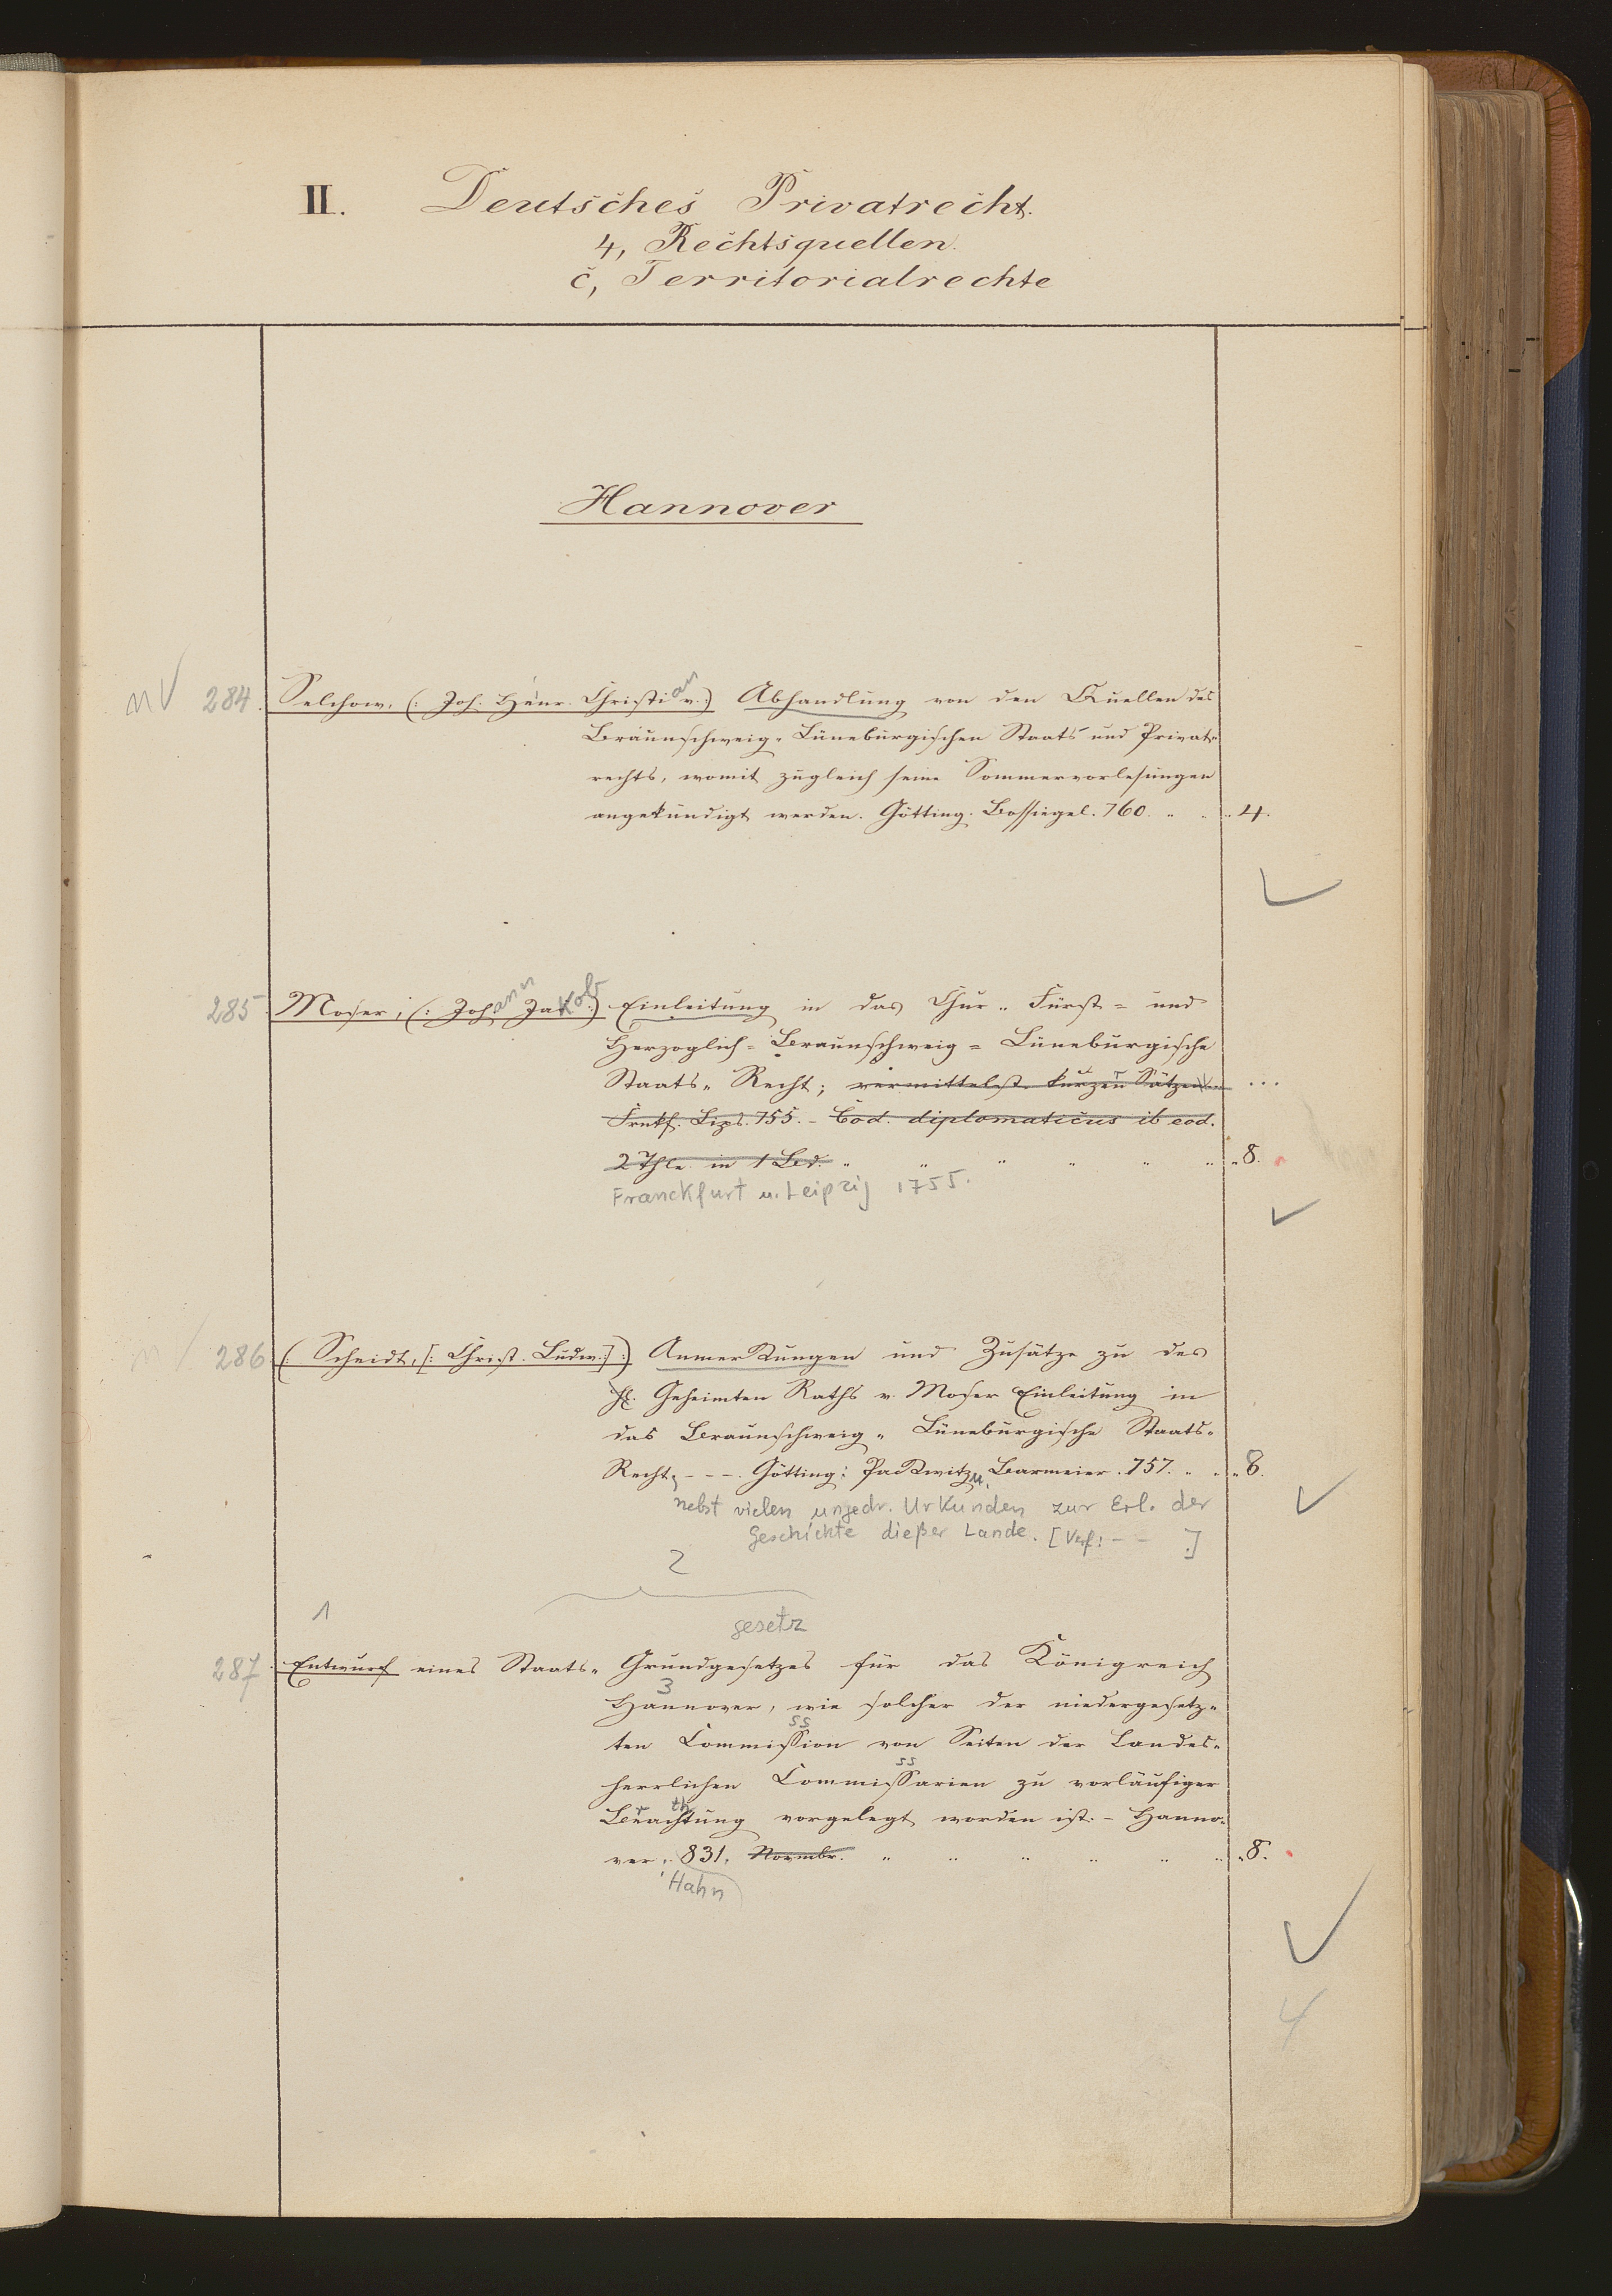 II. Deutsches Privatrecht.
4, Rechtsquellen.
c, Territorialrechte
Hannover
284. Selchow, (: Joh. Henr. Christian v.) Abhandlung von den Quellen des
Braunschweig-Lüneburgischen Staats und Privat-
rechts, womit zugleich seine Sommervorlesungen
angekündigt werden. Götting. Bossiegel. 760. 4.
285. Moser, (: Johann Jakob:) Einleitung in das Chur- Fürst- und
Herzoglich-Braunschweig-Lüneburgische
Staats-Recht; vermittelst kurzen Sätzen ...
Frnkf. Lips. 755. - Cod. diplomaticus ib eod.
2 Thle. in 1 Bd. 8.
Franckfurt u. Leipzig 1755.
286. (: Scheidt, [: Christ. Ludw.:] :) Anmerkungen und Zusätze zu des
H. Geheimten Raths v. Moser Einleitung in
das Braunschweig-Lüneburgische Staats-
Recht, - - -. Götting: Packwitz u. Barmeier. 757. 8.
nebst vielen ungedr. Urkunden zur Erl. der
Geschichte dießer Lande. [Verf: - - .]
2
1
gesetz
287. Entwurf eines Staats-Grundgesetzes für das Königreich
3
Hannover, wie solcher der niedergesetz-
ten Commission von Seiten der Landes-
ss
herrlichen Commissarien zu vorläufiger
ss
Berathung vorgelegt worden ist. - Hanno-
ver, 831. Novmbr. 8.
Hahn
4